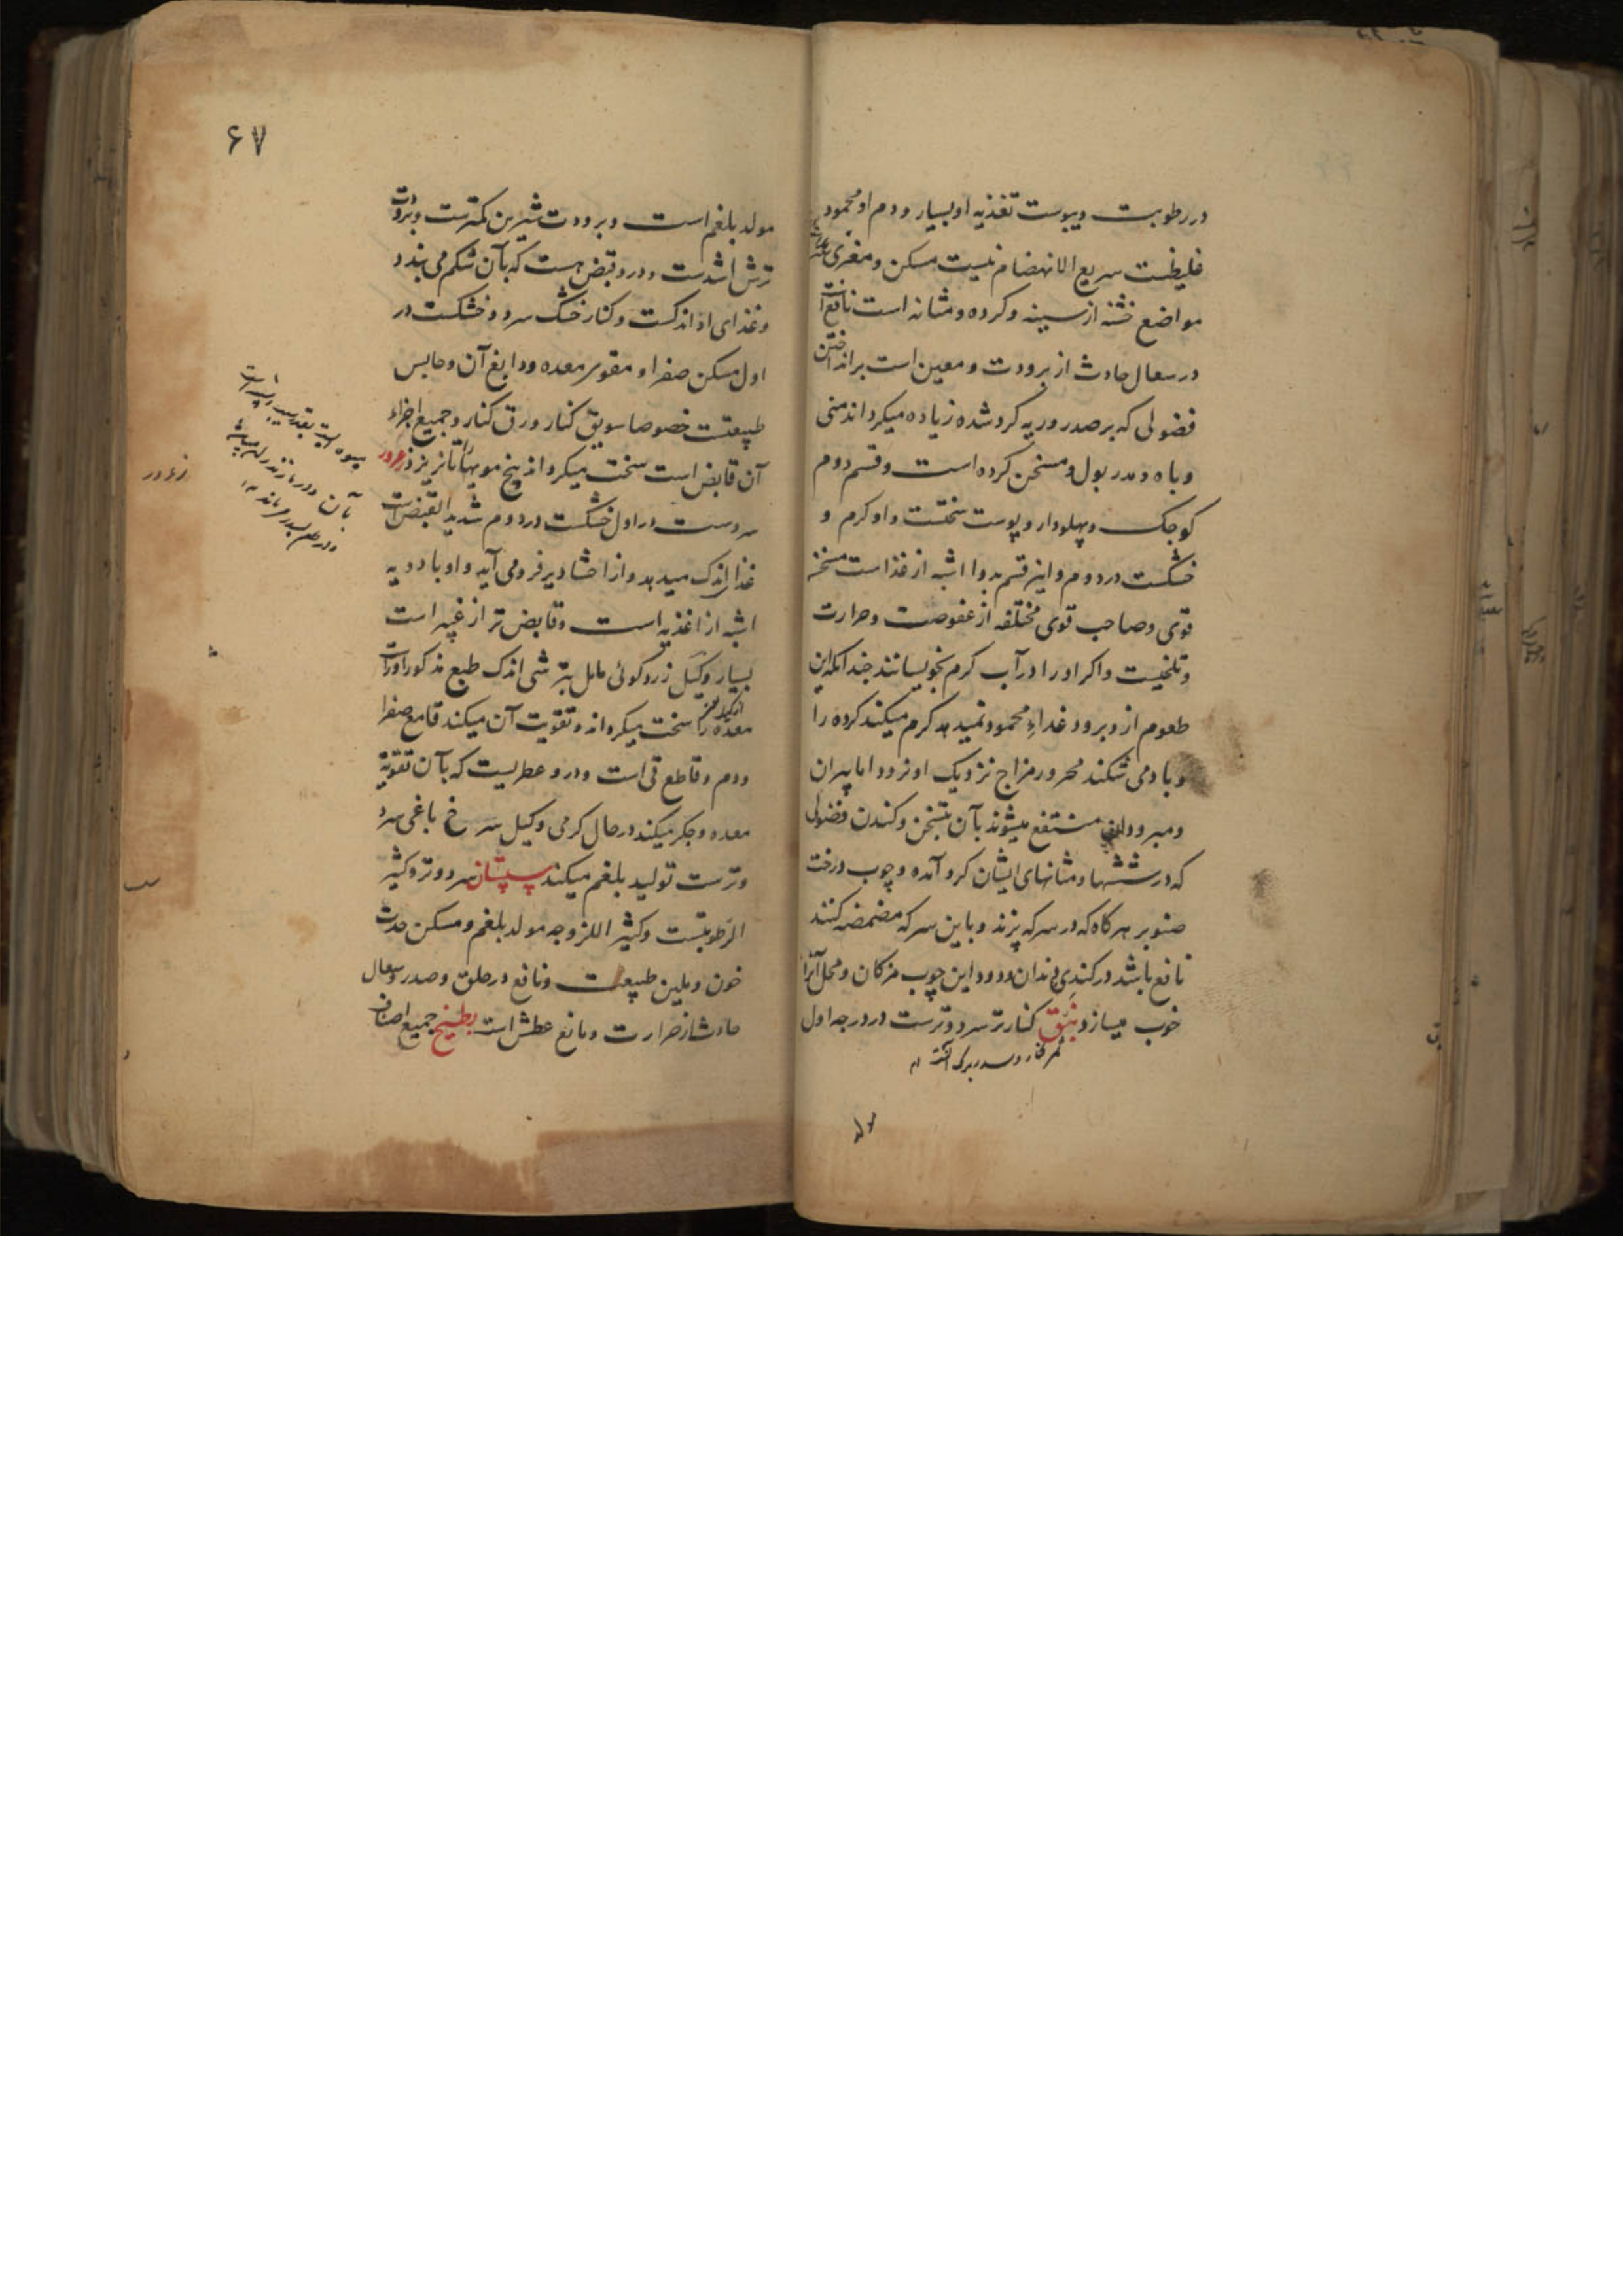 در رطوبت و یبوست تغذیه او بسیار و دم او محمود
غلیظست سریع الانهضام نیست مسکن و مغری
مواضع خشنه از سینه و کرده و مثانه است نافع است
در سعال حادث از برودت و معین است بر انداختن
فضولی که بر صدر و ریه کرد شده زیاده میکرداند منی
و باه و مدر بول و مسخن کرده است و قسم دوم
کوجک و پهلودار و پوست سختست و او کرم و
خشکست در دوم و این قسم بدوا اشبه از غذاست مسخنه
قوی و صاحب قوی مختلفه از عفوصت و حرارت
و تلخیست و اکر او را در آب کرم بخویسانند جندانکه این
طعوم ازو برود غداء محمود نمیدهد کرم میکند کرده را
و باد می شکند محرور مزاج نزدیک او نرود اما پیران
و مبرودان منتفع میشوند بآن بتسخن و کندن فضولی
که در ششها و مثانهای ایشان کرد آمده و چوب درخت
صنوبر هرکاه که در سرکه پزند و باین سرکه مضمضه کنند
نافع باشد در کندی دندان و دود این چوب مژکان و محل آنرا
خوب میسازد نبق کنار تر سرد و ترست در درجه اول
۶۷
مولد بلغم است و برودت شیرین کمترست و برودت
ترش اشدست و درو قبض هست که بآن شکم می بندد
و غذای او اندکست و کنار خشک سرد و خشکست در
اول مسکن صفرا و مقوی معده و دابغ آن و حابس
طبیعتست خصوصا سویق کنار و ورق کنار و جمیع اجزاء
آن قابض است سخت میکرداند بیخ مویها را تا نریزد زعرور
سردست در اول خشکست در دوم شدید القبض است
غذا اندک میدهد و از احشا دیر فرو می آید و او بادویه
اشبه از اغذیه است و قابض تر از غبیراست
بسیار و کیل زرد کوئی مایل بترشی اندک طبع مذکور اورات
معده را سخت میکرداند و تقویت آن میکند قامع صفرا
و دم و قاطع قی است و درو عطریست که بآن تقویة
معده و جکر میکند در حال کرمی و کیل سرخ باغی سرد
و ترست تولید بلغم میکند سپستان سرد و تر و کثیر
الرطوبتست و کثیر اللزوجه مولد بلغم و مسکن حدت
خون و ملین طبیعت و نافع در حلق و صدر و سعال
حادث از حرارت و مانع عطش است بطیخ جمیع اصناف
زعرور